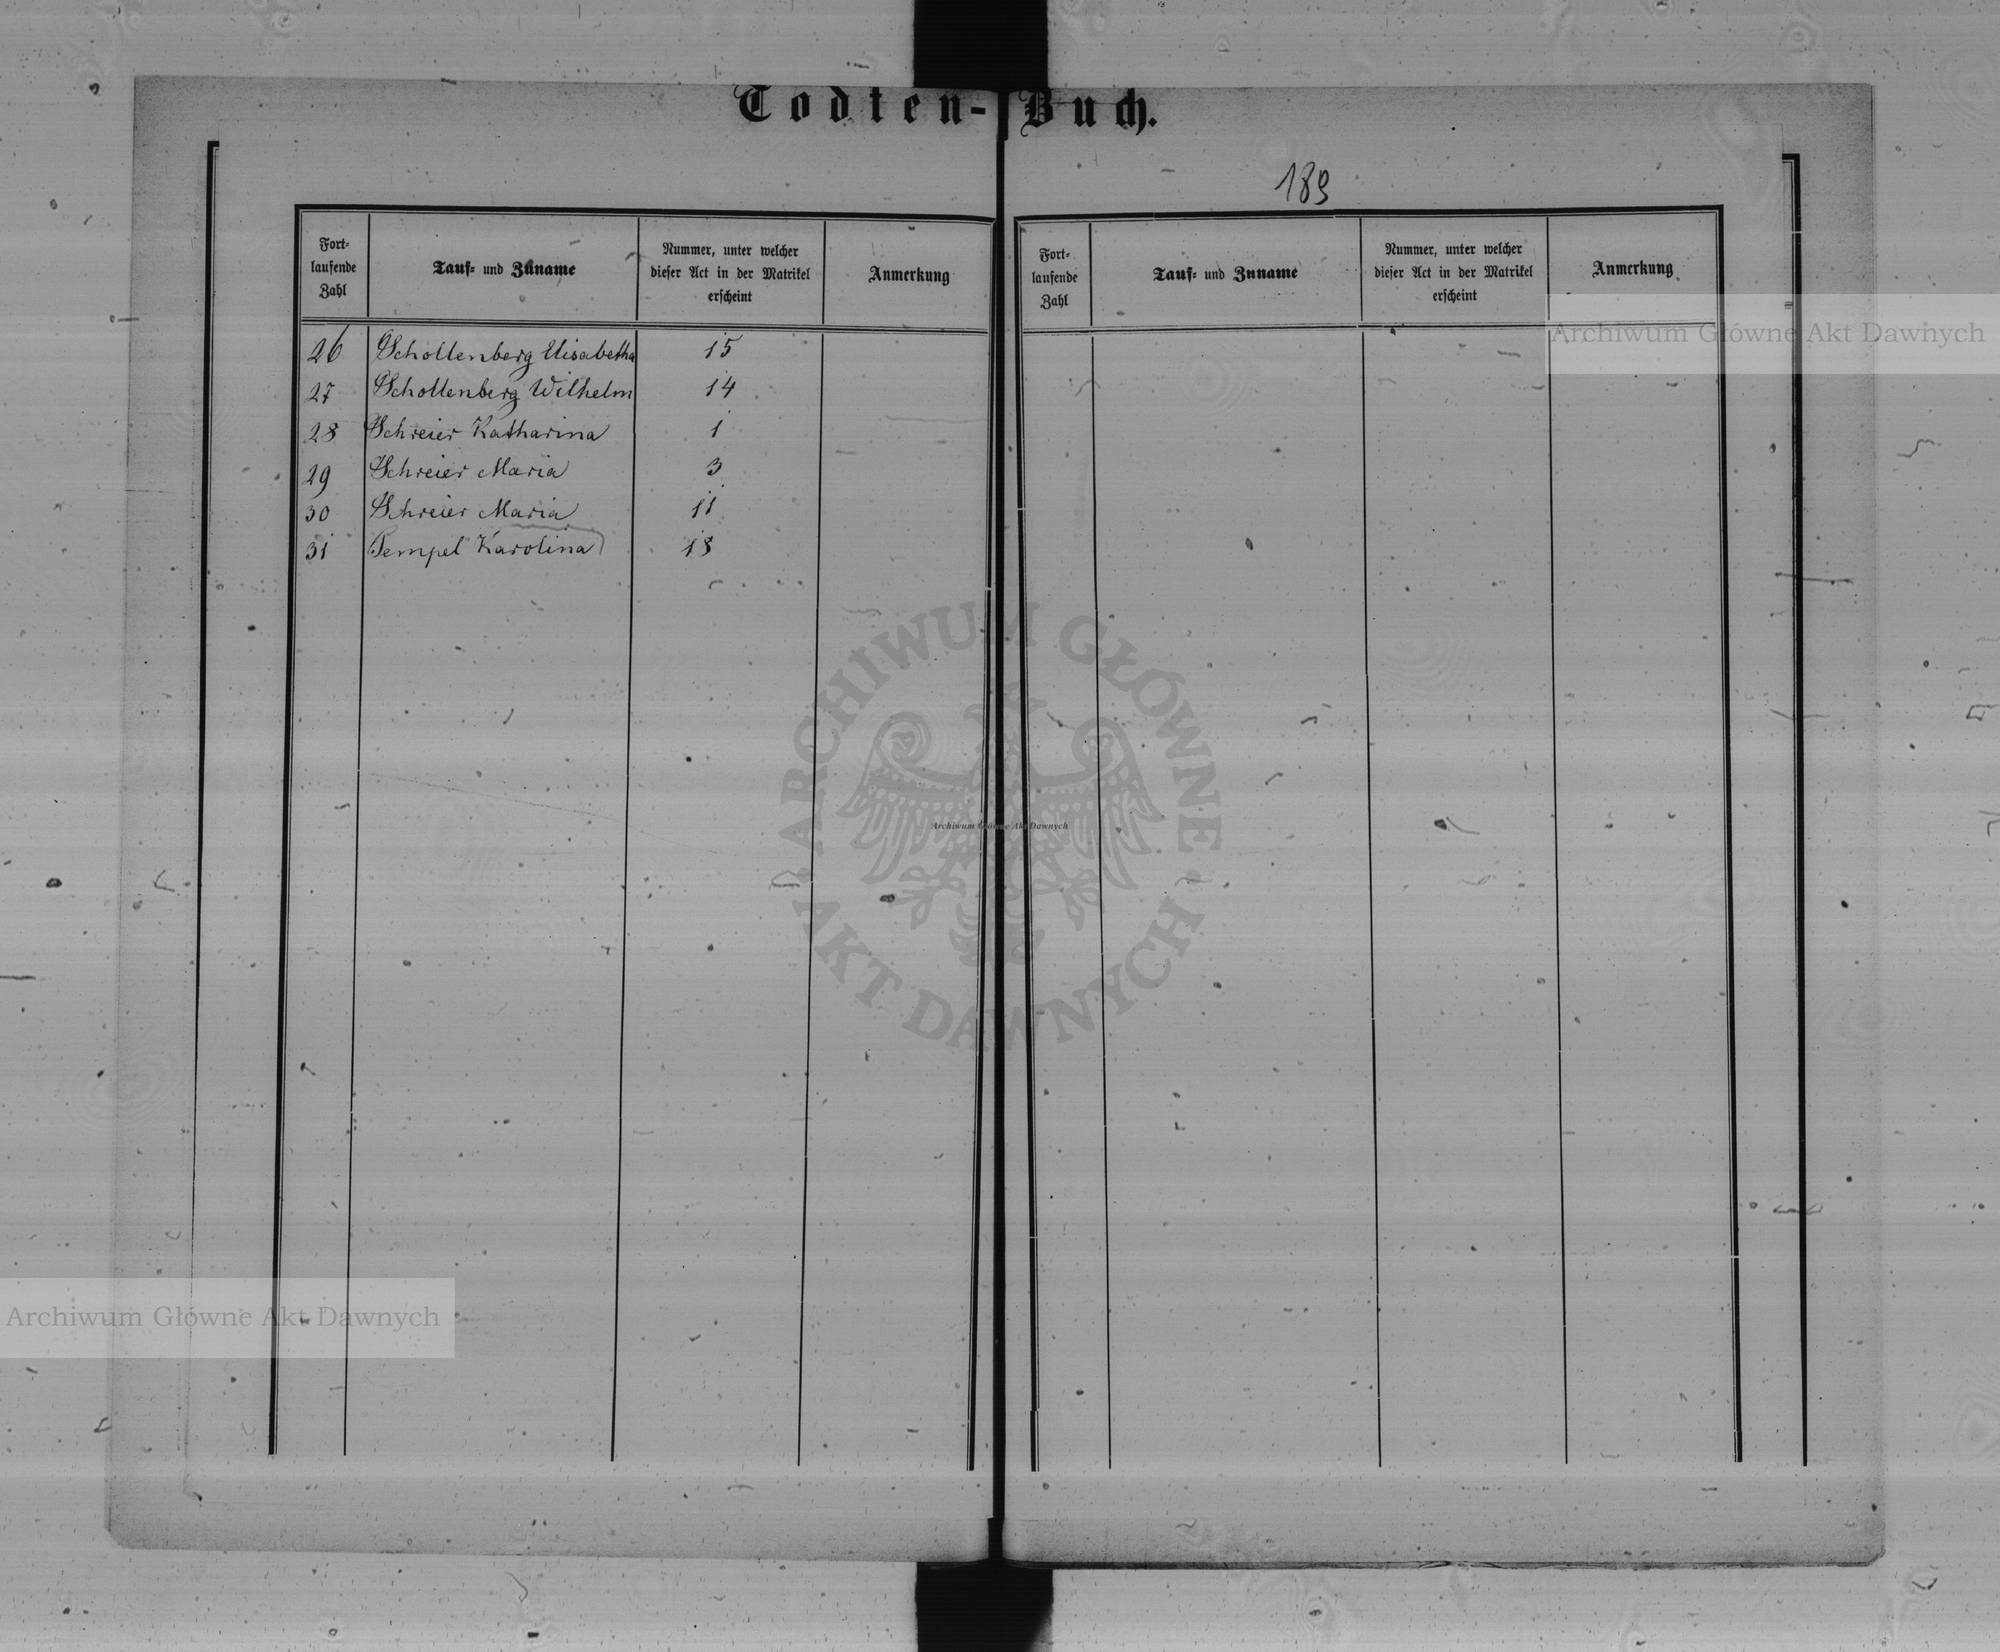 Todten-Buch.
189
Fort-
laufende
Zahl
Tauf- und Zuname
Nummer, unter welcher
dieser Act in der Matrikel
erscheint
Anmerkung
26 Schollenberg Elisabetha 15
27 Schollenberg Wilhelm 14
28 Schreier Katharina 1
29 Schreier Maria 3
30 Schreier Maria 11
31 Tempel Karolina 18
Fort-
laufende
Zahl
Tauf- und Zuname
Nummer, unter welcher
dieser Act in der Matrikel
erscheint
Anmerkung
Archiwum Główne Akt Dawnych
ARCHIWUM GŁÓWNE AKT DAWNYCH
Archiwum Główne Akt Dawnych
Archiwum Główne Akt Dawnych